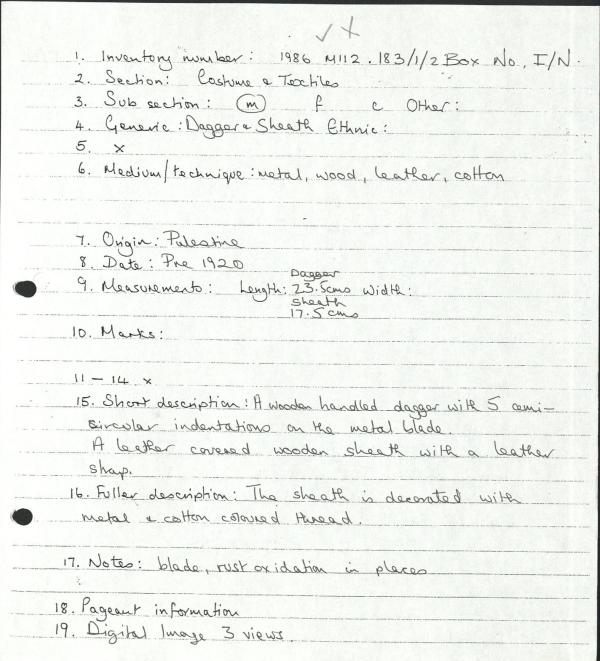 1. Inventory number: 1986 M112.183/1/2 Box No. I/N.
2. Section: Costume & Textiles
3. Sub section: m f c Other:
4. Generic: Dagger & Sheath Ethnic:
5. x
6. Medium/technique: metal, wood, leather, cotton
7. Origin: Palestine
8. Date: Pre 1920
Dagger
9. Measurements: Length: 23.5cms Width:
Sheath
17.5cms
10. Marks:
11 – 14 x
15. Short description: A wooden handled dagger with 5 cemi-
circular indentations on the metal blade.
A leather covered wooden sheath with a leather
strap.
16. Fuller description: The sheath is decorated with
metal & cotton coloured thread.
17. Notes: blade, rust oxidation in places
18. Pageant information
19. Digital Image 3 views.